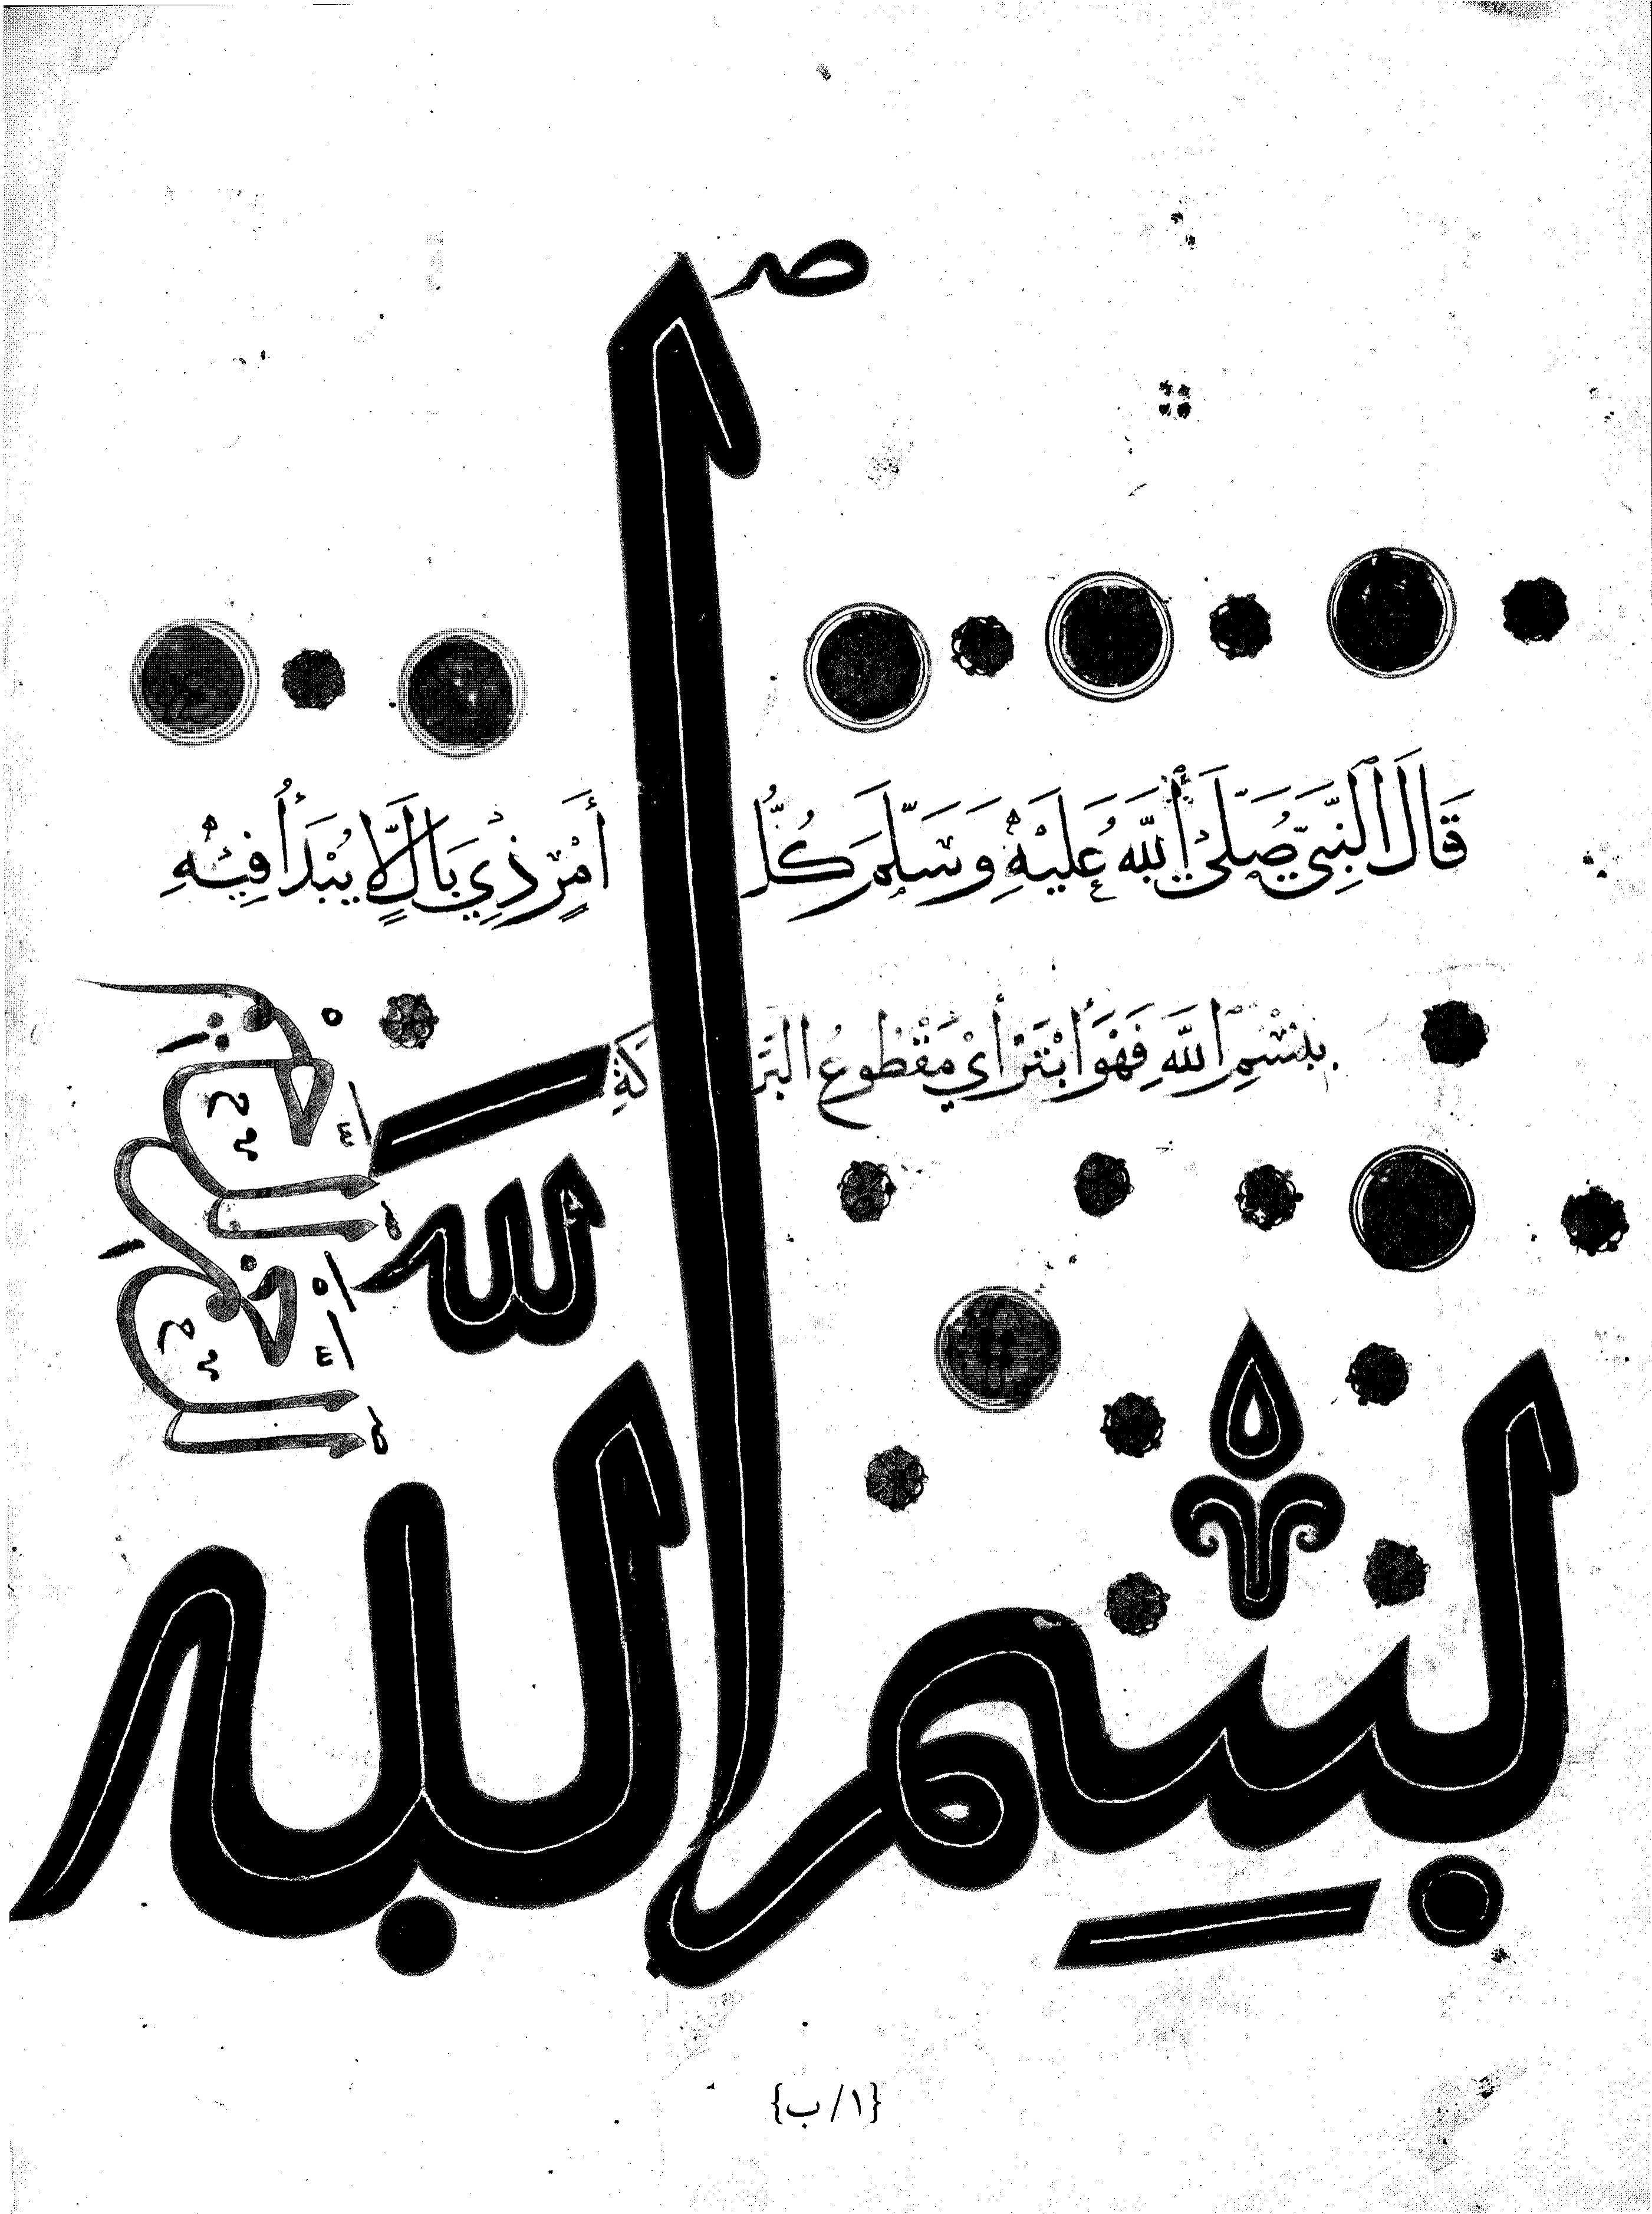 قَالَ ٱلنَّبِيُّ صَلَّى ٱللَّهُ عَلَيْهِ وَسَلَّمَ كُلُّ أَمْرٍ ذِي بَالٍ لَا يُبْدَأُ فِيْهِ
بِبِسْمِ ٱللَّهِ فَهُوَ أَبْتَرْ أَيْ مَقْطُوعُ البَرَكَةِ
بِسْمِ اللَّهِ الرَّحْمٰنِ الرَّحِيْمِ
{١/ب}